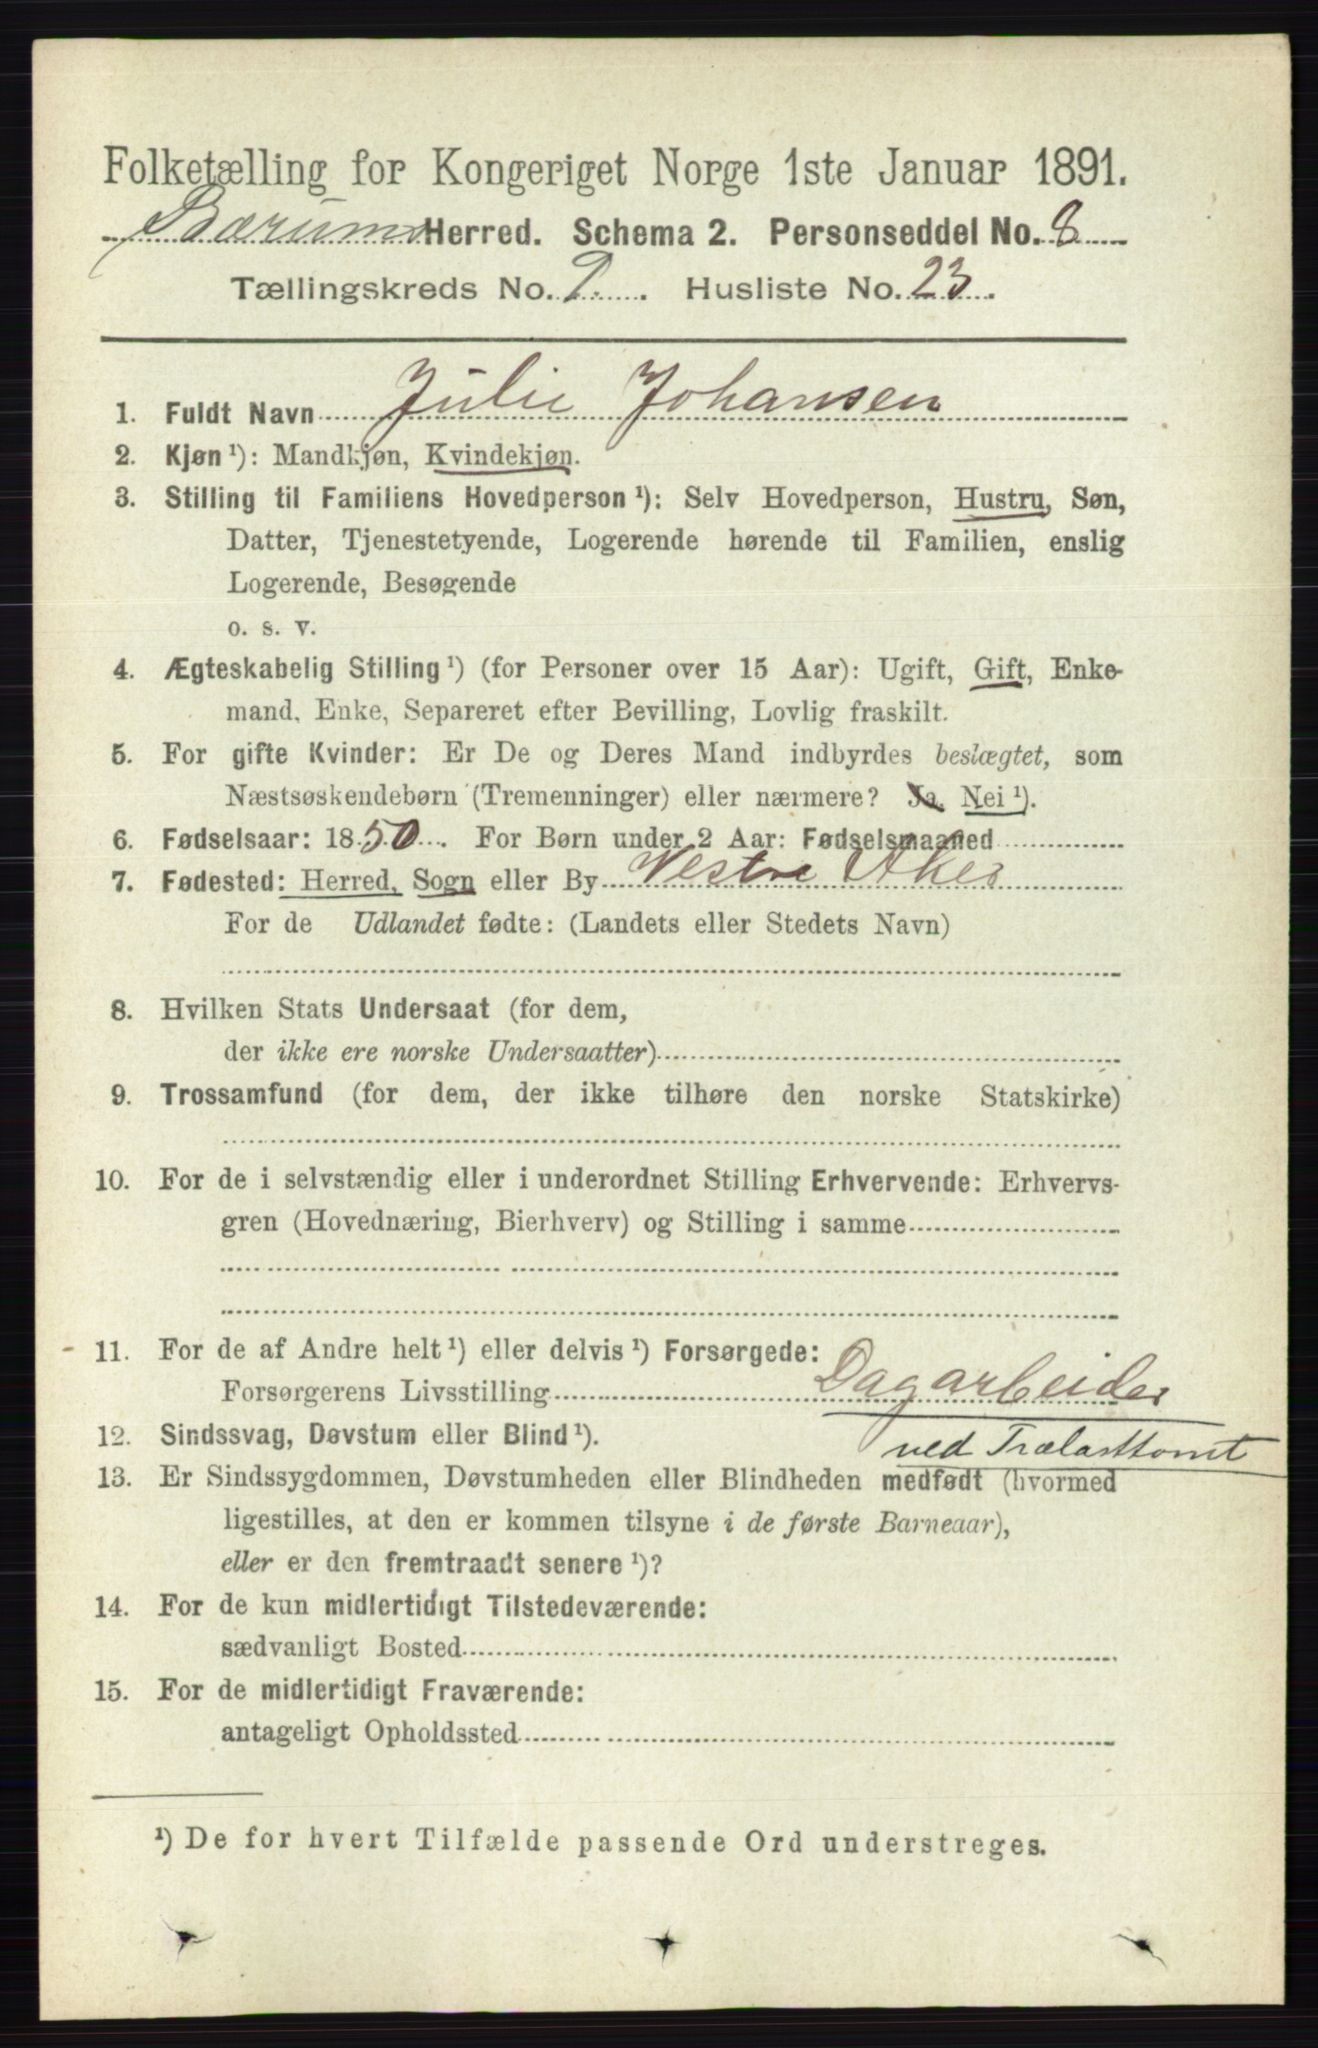 Folketælling for Kongeriget Norge 1ste Januar 1891.
Bærums Herred. Schema 2. Personseddel No. 8
Tællingskreds No. 9. Husliste No. 23.
1. Fuldt Navn Julie Johansen
2. Kjøn¹): Mandkjøn, Kvindekjøn.
3. Stilling til Familiens Hovedperson¹): Selv Hovedperson, Hustru, Søn,
Datter, Tjenestetyende, Logerende hørende til Familien, enslig
Logerende, Besøgende
o. s. v.
4. Ægteskabelig Stilling¹) (for Personer over 15 Aar): Ugift, Gift, Enke-
mand, Enke, Separeret efter Bevilling, Lovlig fraskilt.
5. For gifte Kvinder: Er De og Deres Mand indbyrdes beslægtet, som
Næstsøskendebørn (Tremenninger) eller nærmere? Ja, Nei¹).
6. Fødselsaar: 1850. For Børn under 2 Aar: Fødselsmaaned
7. Fødested: Herred, Sogn eller By Vestre Aker
For de Udlandet fødte: (Landets eller Stedets Navn)
8. Hvilken Stats Undersaat (for dem,
der ikke ere norske Undersaatter)
9. Trossamfund (for dem, der ikke tilhøre den norske Statskirke)
10. For de i selvstændig eller i underordnet Stilling Erhvervende: Erhvervs-
gren (Hovednæring, Bierhverv) og Stilling i samme
11. For de af Andre helt¹) eller delvis¹) Forsørgede:
Forsørgerens Livsstilling Dagarbeider
12. Sindssvag, Døvstum eller Blind¹). ved Trælasttomt
13. Er Sindssygdommen, Døvstumheden eller Blindheden medfødt (hvormed
ligestilles, at den er kommen tilsyne i de første Barneaar),
eller er den fremtraadt senere¹)?
14. For de kun midlertidigt Tilstedeværende:
sædvanligt Bosted
15. For de midlertidigt Fraværende:
antageligt Opholdssted
¹) De for hvert Tilfælde passende Ord understreges.